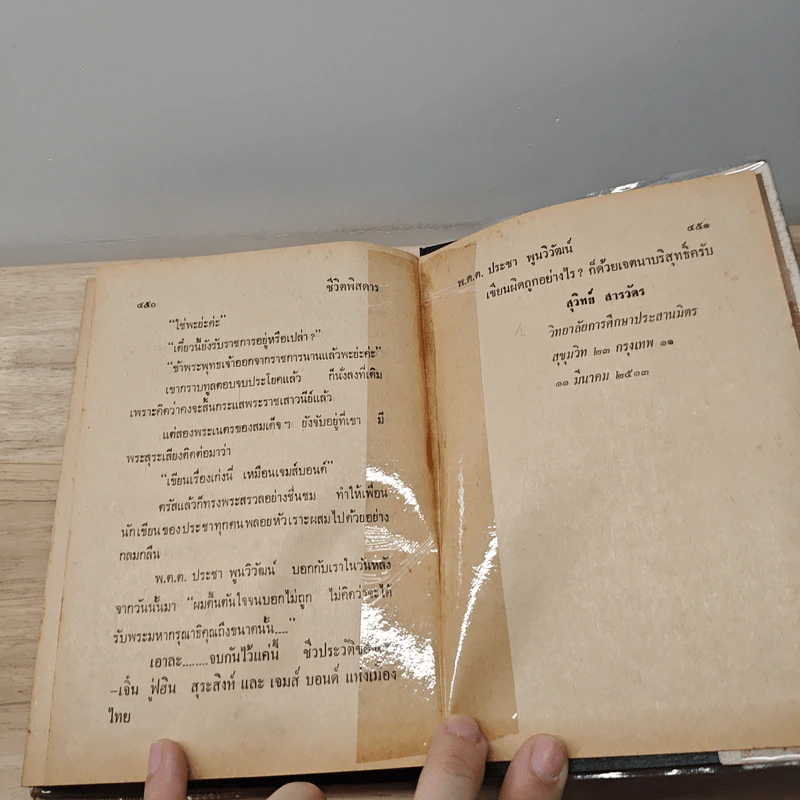 ๔๕๐
ชีวิตพิสดาร
“ใช่พะย่ะค่ะ”
“เดี๋ยวนี้ยังรับราชการอยู่หรือเปล่า?”
“ข้าพระพุทธเจ้าออกจากราชการนานแล้วพะย่ะค่ะ”
เขากราบทูลตอบจบประโยคแล้ว ก็นั่งลงที่เดิม
เพราะคิดว่าคงจะสิ้นกระแสพระราชเสาวนีย์แล้ว
แต่สองพระเนตรของสมเด็จฯ ยังจับอยู่ที่เขา มี
พระสุระเสียงติดต่อมาว่า
“เขียนเรื่องเก่งนี่ เหมือนเจมส์บอนด์”
ตรัสแล้วก็ทรงพระสรวลอย่างชื่นชม ทำให้เพื่อน
นักเขียนของประชาทุกคนพลอยหัวเราะผสมไปด้วยอย่าง
กลมกลืน
พ.ต.ต. ประชา พูนวิวัฒน์ บอกกับเราในวันหลัง
จากวันนั้นมา “ผมตื้นตันใจจนบอกไม่ถูก ไม่คิดว่าจะได้
รับพระมหากรุณาธิคุณถึงขนาดนั้น....”
เอาละ........จบกันไว้แค่นี้ ชีวประวัติ
–เจิ่น ฟู่ฮิน สุระสิงห์ และ เจมส์ บอนด์ แห่งเมือง
ไทย
๔๕๑
พ.ต.ต. ประชา พูนวิวัฒน์
เขียนผิดถูกอย่างไร? ก็ด้วยเจตนาบริสุทธิ์ครับ
สุวิทย์ สารวัตร
วิทยาลัยการศึกษาประสานมิตร
สุขุมวิท ๒๓ กรุงเทพ ๑๑
๑๑ มีนาคม ๒๕๑๓